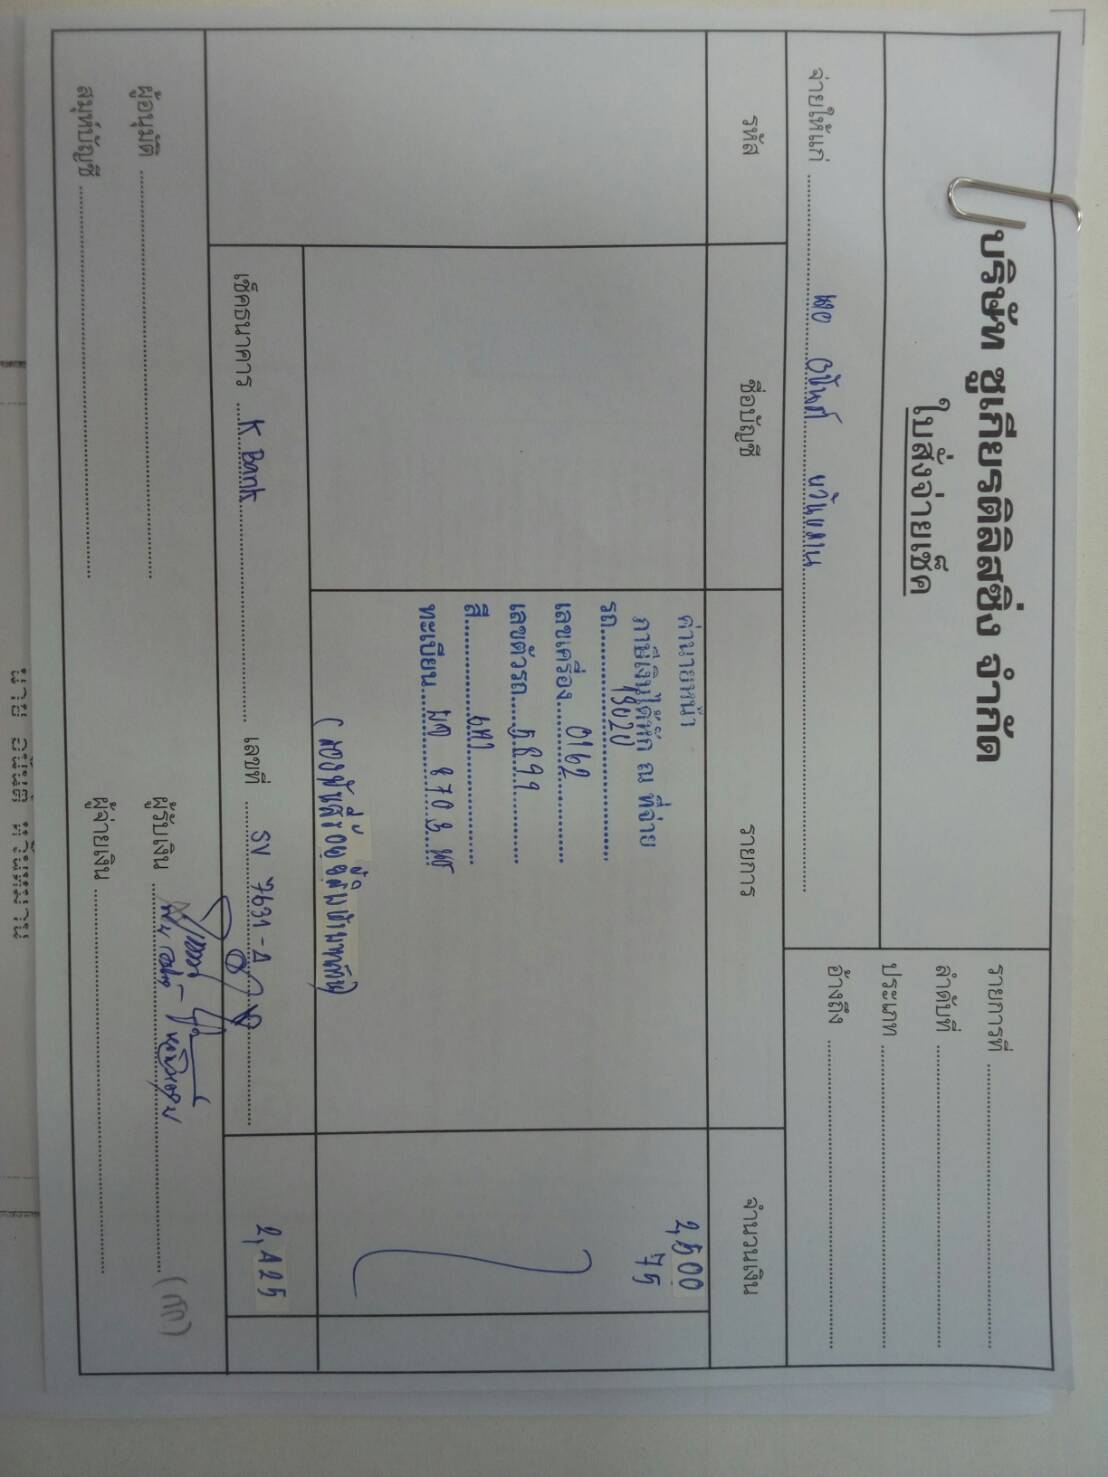 บริษัท ชูเกียรติลิสซิ่ง จำกัด
ใบสั่งจ่ายเช็ค
รายการที่
ลำดับที่
ประเภท
อ้างถึง
จ่ายให้แก่ อนันต์ หวันหมาน
รหัส ชื่อบัญชี รายการ จำนวนเงิน
ค่านายหน้า 2,500
ภาษีเงินได้หัก ณ ที่จ่าย 75
รถ
เลขเครื่อง 0162
เลขตัวรถ 5899
สี เทา
ทะเบียน 8703
(สองพันสี่ร้อยยี่สิบห้าบาทถ้วน)
เช็คธนาคาร K Bank เลขที่ SV 7631-A 2,425
ผู้อนุมัติ
ผู้รับเงิน
สมุห์บัญชี
ผู้จ่ายเงิน
นาย อนันต์ หวันหมาน